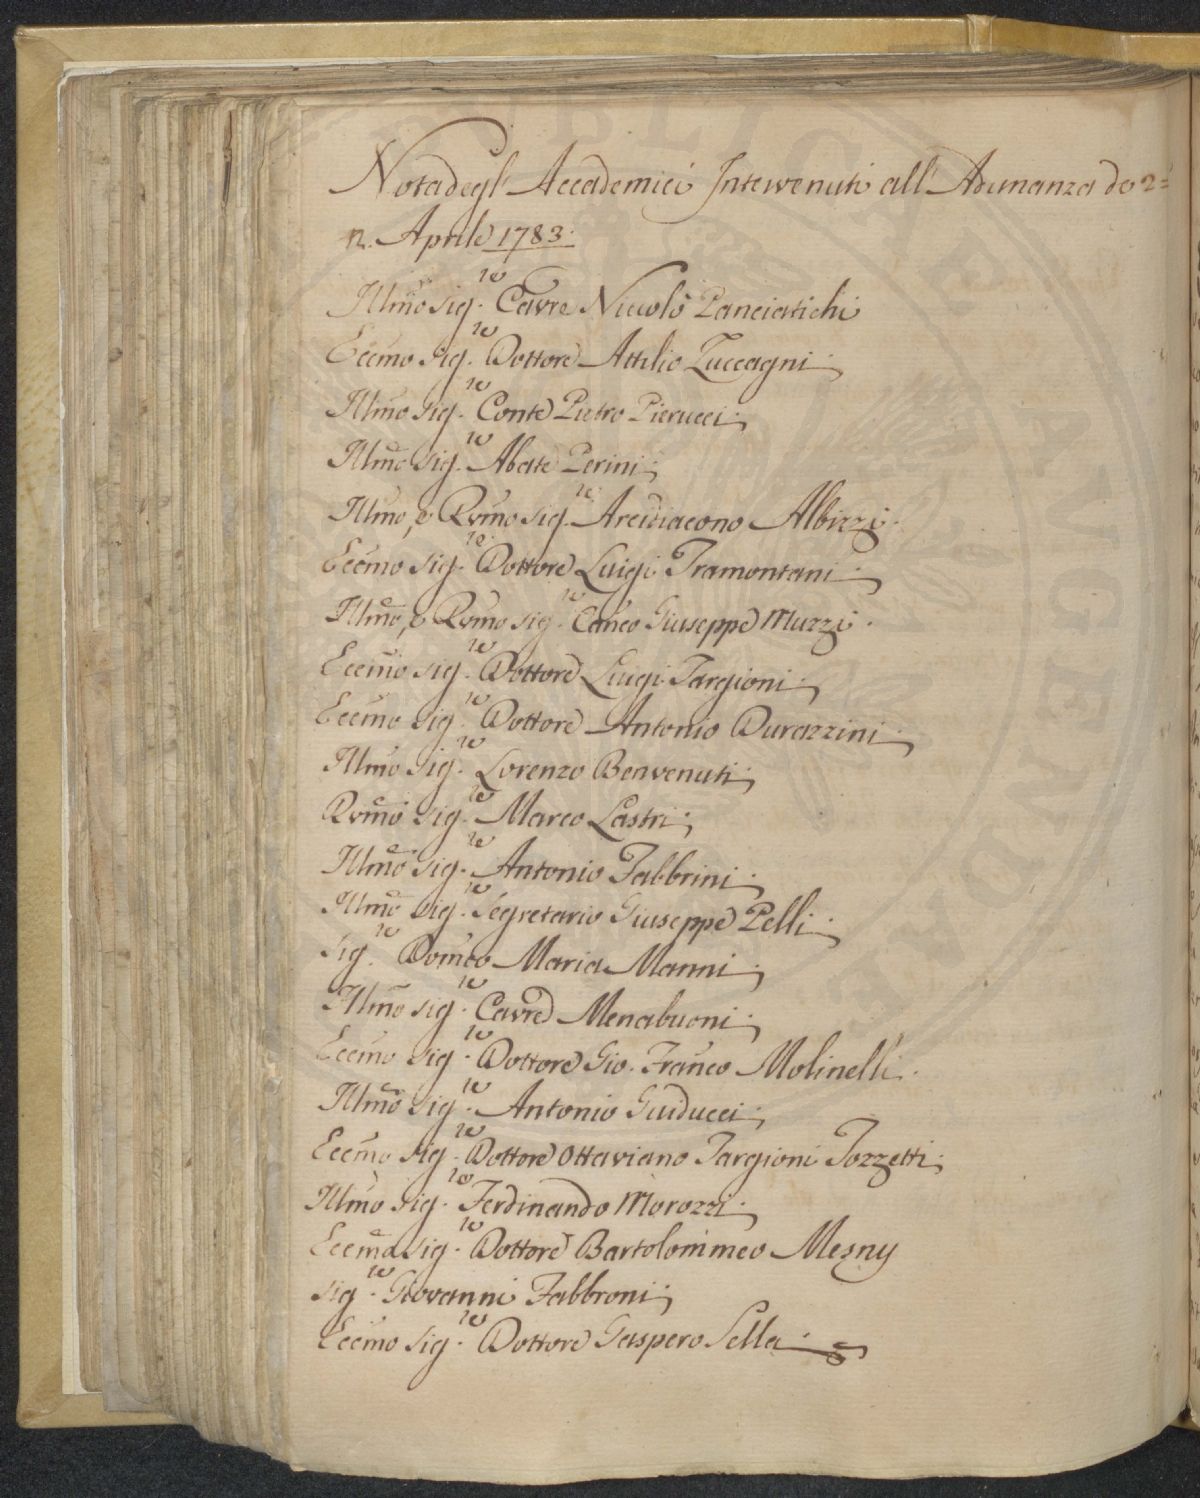 Nota degl' Accademici Intervenuti all' Adunanza de 2=
n. Aprile 1783.
Illmo Sig.re Cavre Niccolò Panciatichi
Eccmo Sig.re Dottore Attilio Zuccagni;
Illmo Sig.re Conte Pietro Pierucci;
Illmo Sig.re Abate Perini;
Illmo, e Rvmo Sig.re Arcidiacono Albizzi.
Eccmo Sig.re Dottore Luigi Tramontani;
Illmo, e Rvmo Sig.re Canco Giuseppe Muzzi.
Eccmo Sig.re Dottore Luigi Targioni;
Eccmo Sig.re Dottore Antonio Durazzini;
Illmo Sig.re Lorenzo Benvenuti;
Rvmo Sig.re Marco Lastri;
Illmo Sig.re Antonio Fabbrini;
Illmo Sig.re Segretario Giuseppe Pelli;
Sig.re Domco Maria Manni;
Illmo Sig.re Cavre Menabuoni;
Eccmo Sig.re Dottore Gio. Franco Molinelli.
Illmo Sig.re Antonio Guiducci;
Eccmo Sig.re Dottore Ottaviano Targioni Tozzetti;
Illmo Sig.re Ferdinando Morozzi;
Eccmo Sig.re Dottore Bartolommeo Mesny
Sig.re Giovanni Fabbroni;
Eccmo Sig.re Dottore Gaspero Sella.